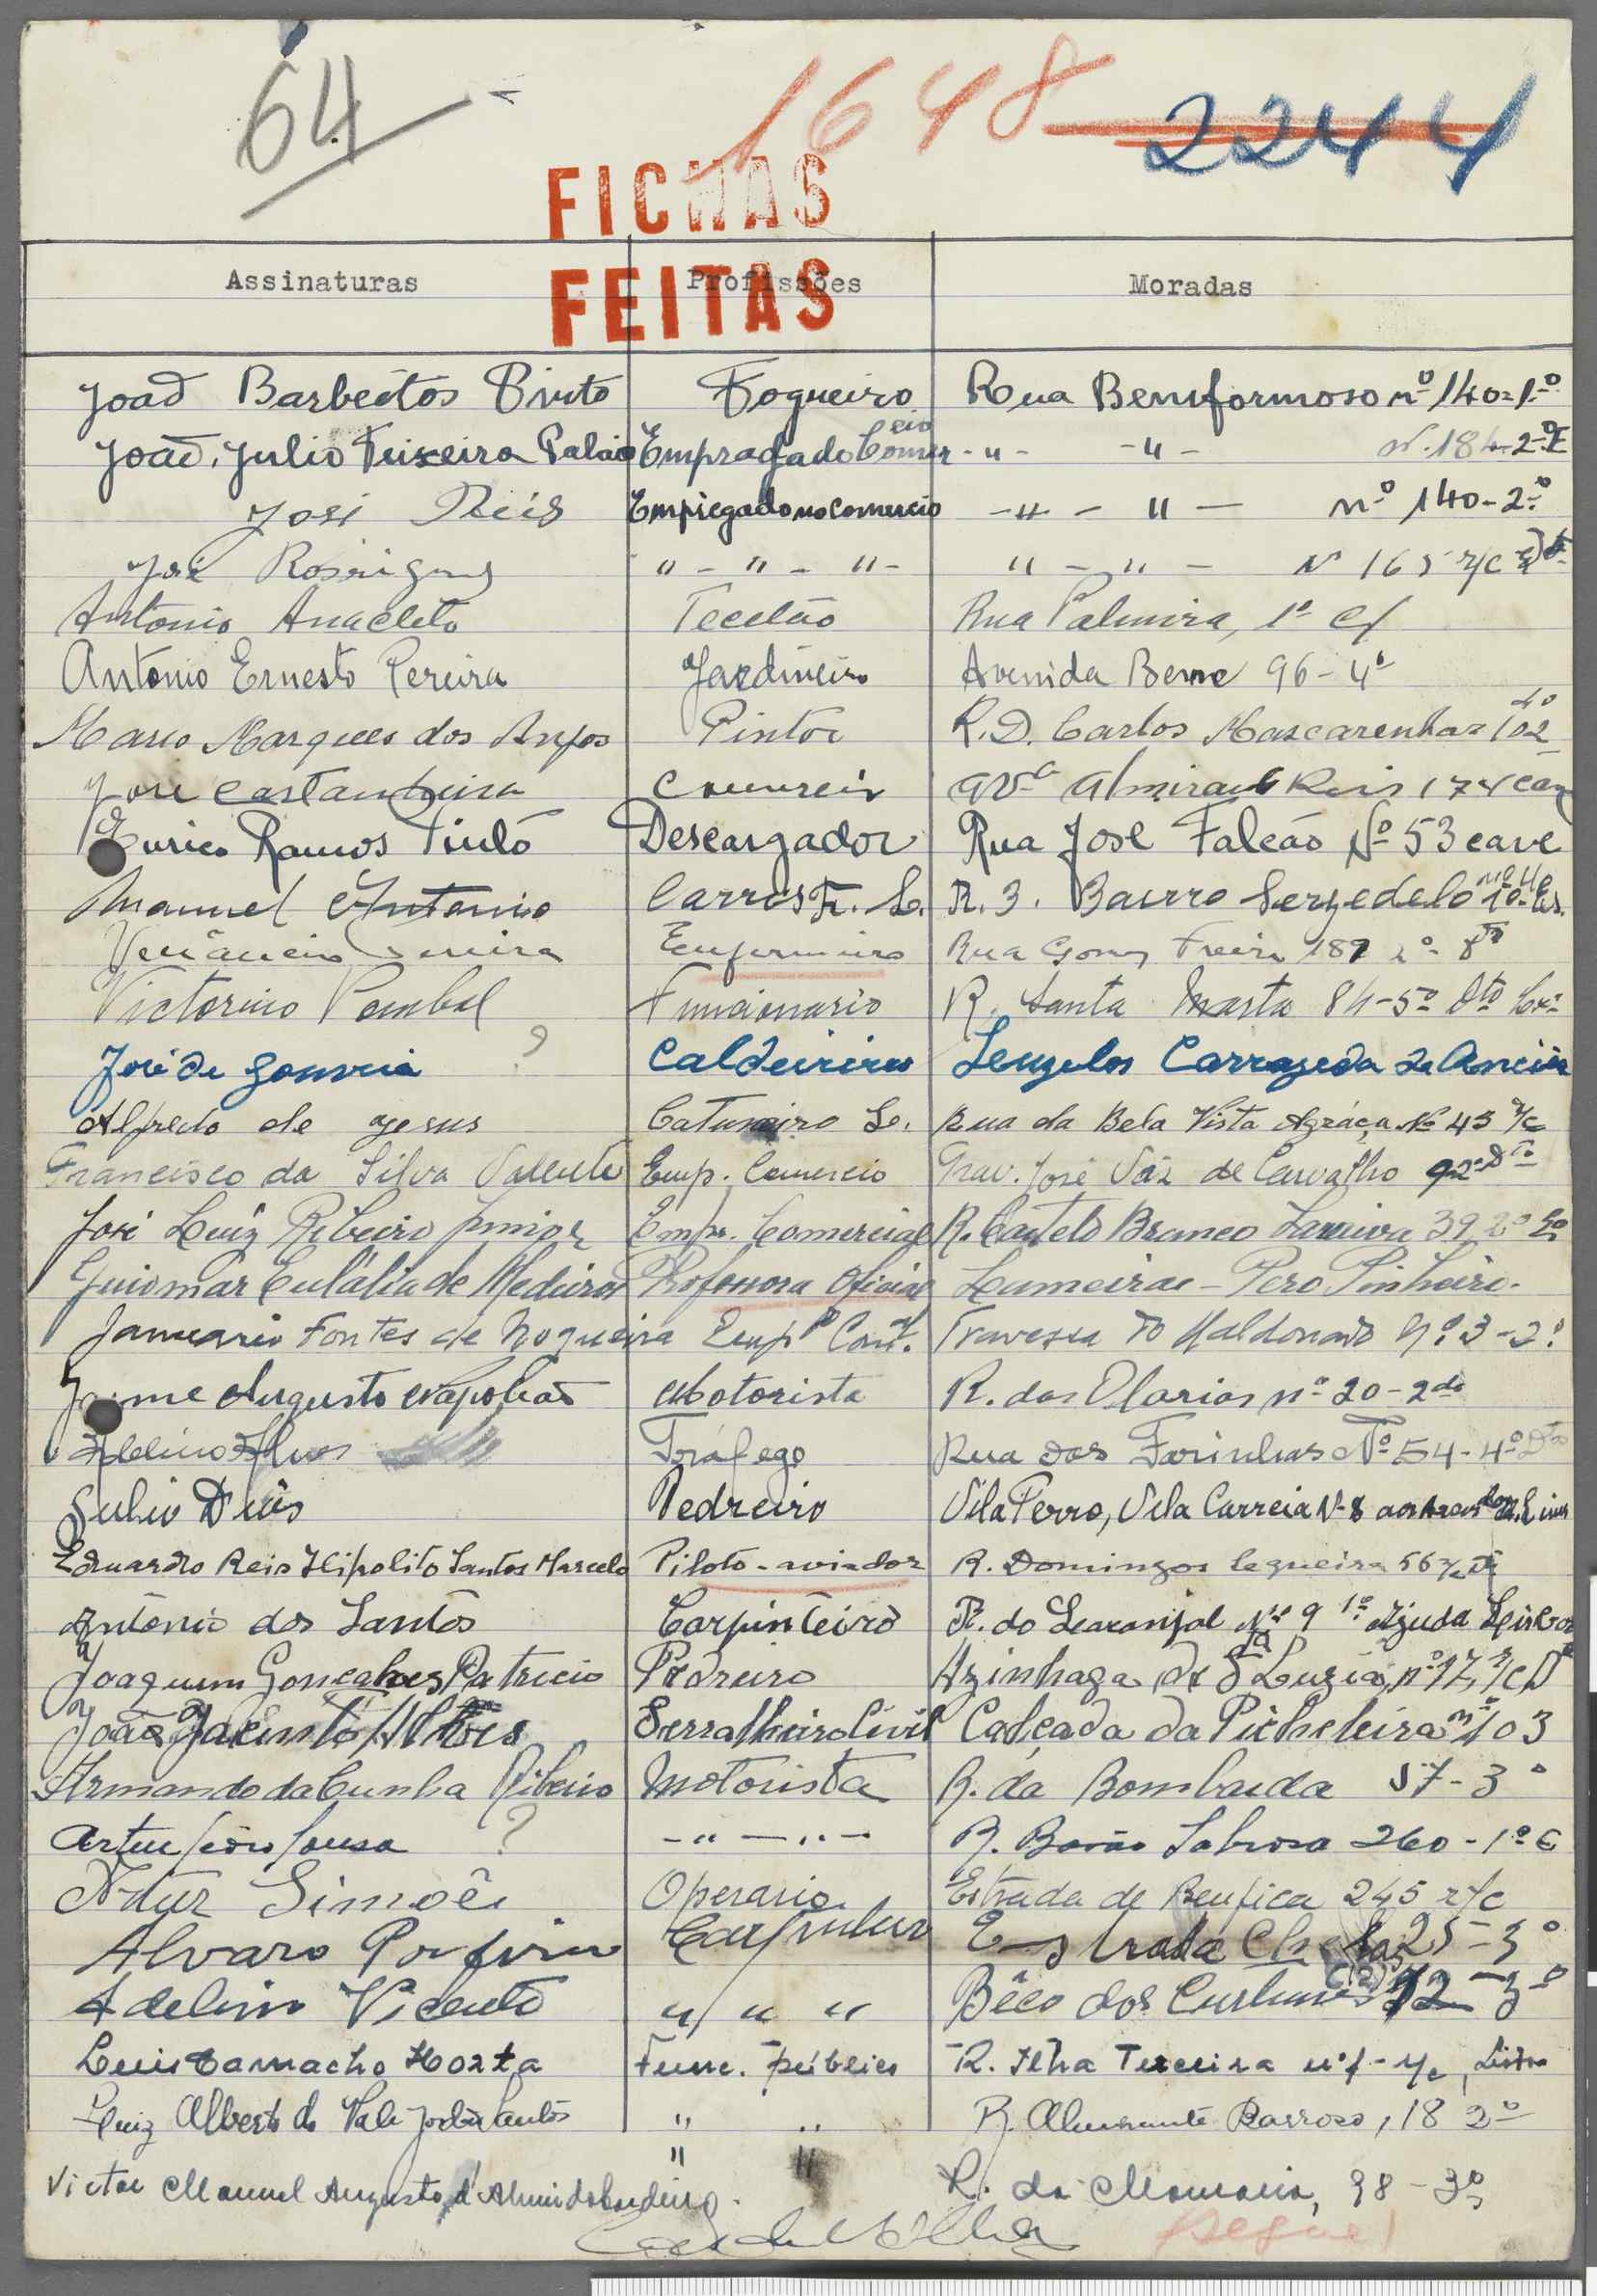 64
1648 2244
FICHAS
FEITAS
Assinaturas Profissões Moradas
João Barbeitos Pinto Fogueiro Rua Bemformoso nº 140-1º
João Julio Teixeira Palaio Empragado Comercio - " - - " - N. 184-2º E
José Reis Empregado no Comercio - " - " - nº 140-2º
José Rodrigues " - " - " - " - " - Nº 165 r/c
Antonio Anacleto Tecelão Rua Palmira, 1º
Antonio Ernesto Pereira Jardineiro Avenida Berne 96-4º
Mario Marques dos Anjos Pintor R. D. Carlos Mascarenhas 102 4º
José Castanheira Comercio Avª Almirante Reis 174
Eurico Ramos Pinto Descargador Rua José Falcão Nº 53 cave
Manuel Antonio Carris F. L. R. 3. Bairro Serzedelo
Venâncio Enfermeiro Rua Gomes Freire
Victorino Pombal Funcionario R. Santa Marta 84-5º Dto
José de Gouveia ? Caldeireiro Carrazeda de Anciães
Alfredo de Jesus Rua da Bela Vista Agráça Nº 43 r/c
Francisco da Silva Valente Emp. Comercio Trav. José Vaz de Carvalho
José Luiz Ribeiro Junior Emp. Comercial R. Castelo Branco Saraiva 39 2º
Guiomar Eulália de Medeiros Professora Oficial Lameiras - Pero Pinheiro.
Januario Fontes de Nogueira Empº Com. Travessa do Maldonado Nº 3-2º
Jaime Augusto Napoleão Motorista R. das Olarias nº 20-2do
Adelino Alves Tráfego Rua das Farinhas Nº 54-4º Dto
Julio Diniz Pedreiro Vila Ferro, Vila Correia Nº 8
Eduardo Reis Hipolito Santos Marcelo Piloto-aviador R. Domingos Sequeira 56
António dos Santos Carpinteiro R. do Laranjal Nº 9 1º Ajuda Lisboa
Joaquim Gonçalves Patricio Pedreiro Azinhaga de Sta Luzia, nº 17, r/c D
João Jacinto Serralheiro Civil Calçada da Picheleira nº 103
Armando da Cunha Ribeiro Motorista R. da Bombarda 57-3º
Artur Sousa ? - " - " - R. Barão Sabrosa 260-1º E
Artur Simões Operario Estrada de Benfica 245 r/c
Alvaro Porfirio Carpinteiro Estrada Chelas 25-3º
Adelino Vicente " " " Bêco dos Curtumes 12-3º
Luis Camacho Horta Func. público R. Ilha Terceira nº 1-r/c, Lisboa
Luiz Alberto do Vale Santos " " R. Almirante Barroso, 18 2º
Victor Manuel Augusto d'Almeida " " R. da Mouraria, 98-3º
Segue